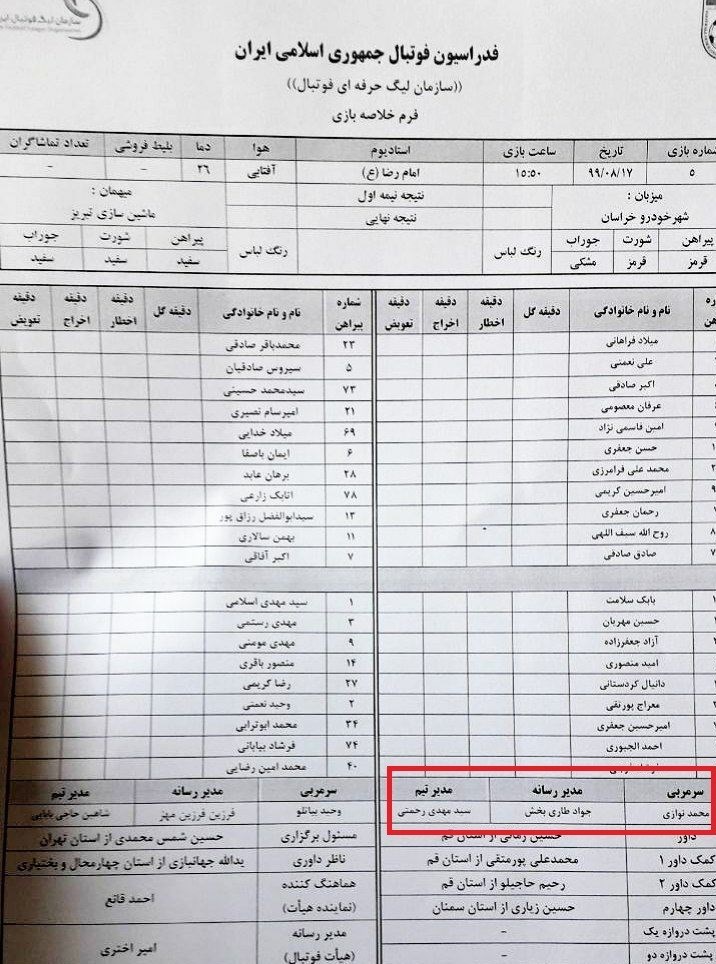 سازمان لیگ فوتبال ایران
فدراسیون فوتبال جمهوری اسلامی ایران
((سازمان لیگ حرفه ای فوتبال))
فرم خلاصه بازی
شماره بازی تاریخ ساعت بازی استادیوم هوا دما بلیط فروشی تعداد تماشاگران
۵ ۹۹/۰۸/۱۷ ۱۵:۵۰ امام رضا (ع) آفتابی ۲۶ - -
میزبان : نتیجه نیمه اول میهمان :
شهرخودرو خراسان نتیجه نهایی ماشین سازی تبریز
پیراهن شورت جوراب رنگ لباس رنگ لباس پیراهن شورت جوراب
قرمز قرمز مشکی سفید سفید سفید
نام و نام خانوادگی دقیقه گل دقیقه اخطار دقیقه اخراج دقیقه تعویض شماره پیراهن نام و نام خانوادگی دقیقه گل دقیقه اخطار دقیقه اخراج دقیقه تعویض
میلاد فراهانی ۲۳ محمدباقر صادقی
علی نعمتی ۵ سیروس صادقیان
اکبر صادقی ۷۳ سیدمحمد حسینی
عرفان معصومی ۲۱ امیرسام نصیری
امین قاسمی نژاد ۶۹ میلاد خدایی
حسن جعفری ۶ ایمان باصفا
محمد علی فرامرزی ۲۸ برهان عابد
امیرحسین کریمی ۷۸ اتابک زارعی
رحمان جعفری ۱۳ سیدابوالفضل رزاق پور
روح الله سیف اللهی ۱۱ بهمن سالاری
صادق صادقی ۷ اکبر آفاقی
بابک سلامت ۱ سید مهدی اسلامی
حسین مهربان ۳ مهدی رستمی
آزاد جعفرزاده ۹ مهدی مومنی
امید منصوری ۱۴ منصور باقری
دانیال کردستانی ۲۷ رضا کریمی
معراج پورتقی ۲ وحید نعمتی
امیرحسین جعفری ۳۴ محمد ابوترابی
احمد الجبوری ۷۴ فرشاد بیاباتی
۴۰ محمد امین رضایی
سرمربی مدیر رسانه مدیر تیم سرمربی مدیر رسانه مدیر تیم
محمد نوازی جواد طاری بخش سید مهدی رحمتی وحید بیاتلو فرزین فرزین مهر شاهین حاجی بابایی
داور حسین زمانی از استان قم مسئول برگزاری حسین شمس محمدی از استان تهران
کمک داور ۱ محمدعلی پورمتقی از استان قم ناظر داوری یدالله جهانبازی از استان چهارمحال و بختیاری
کمک داور ۲ رحیم حاجیلو از استان قم هماهنگ کننده (نماینده هیأت) احمد قانع
داور چهارم حسین زیاری از استان سمنان
پشت دروازه یک - مدیر رسانه (هیأت فوتبال) امیر اختری
پشت دروازه دو -